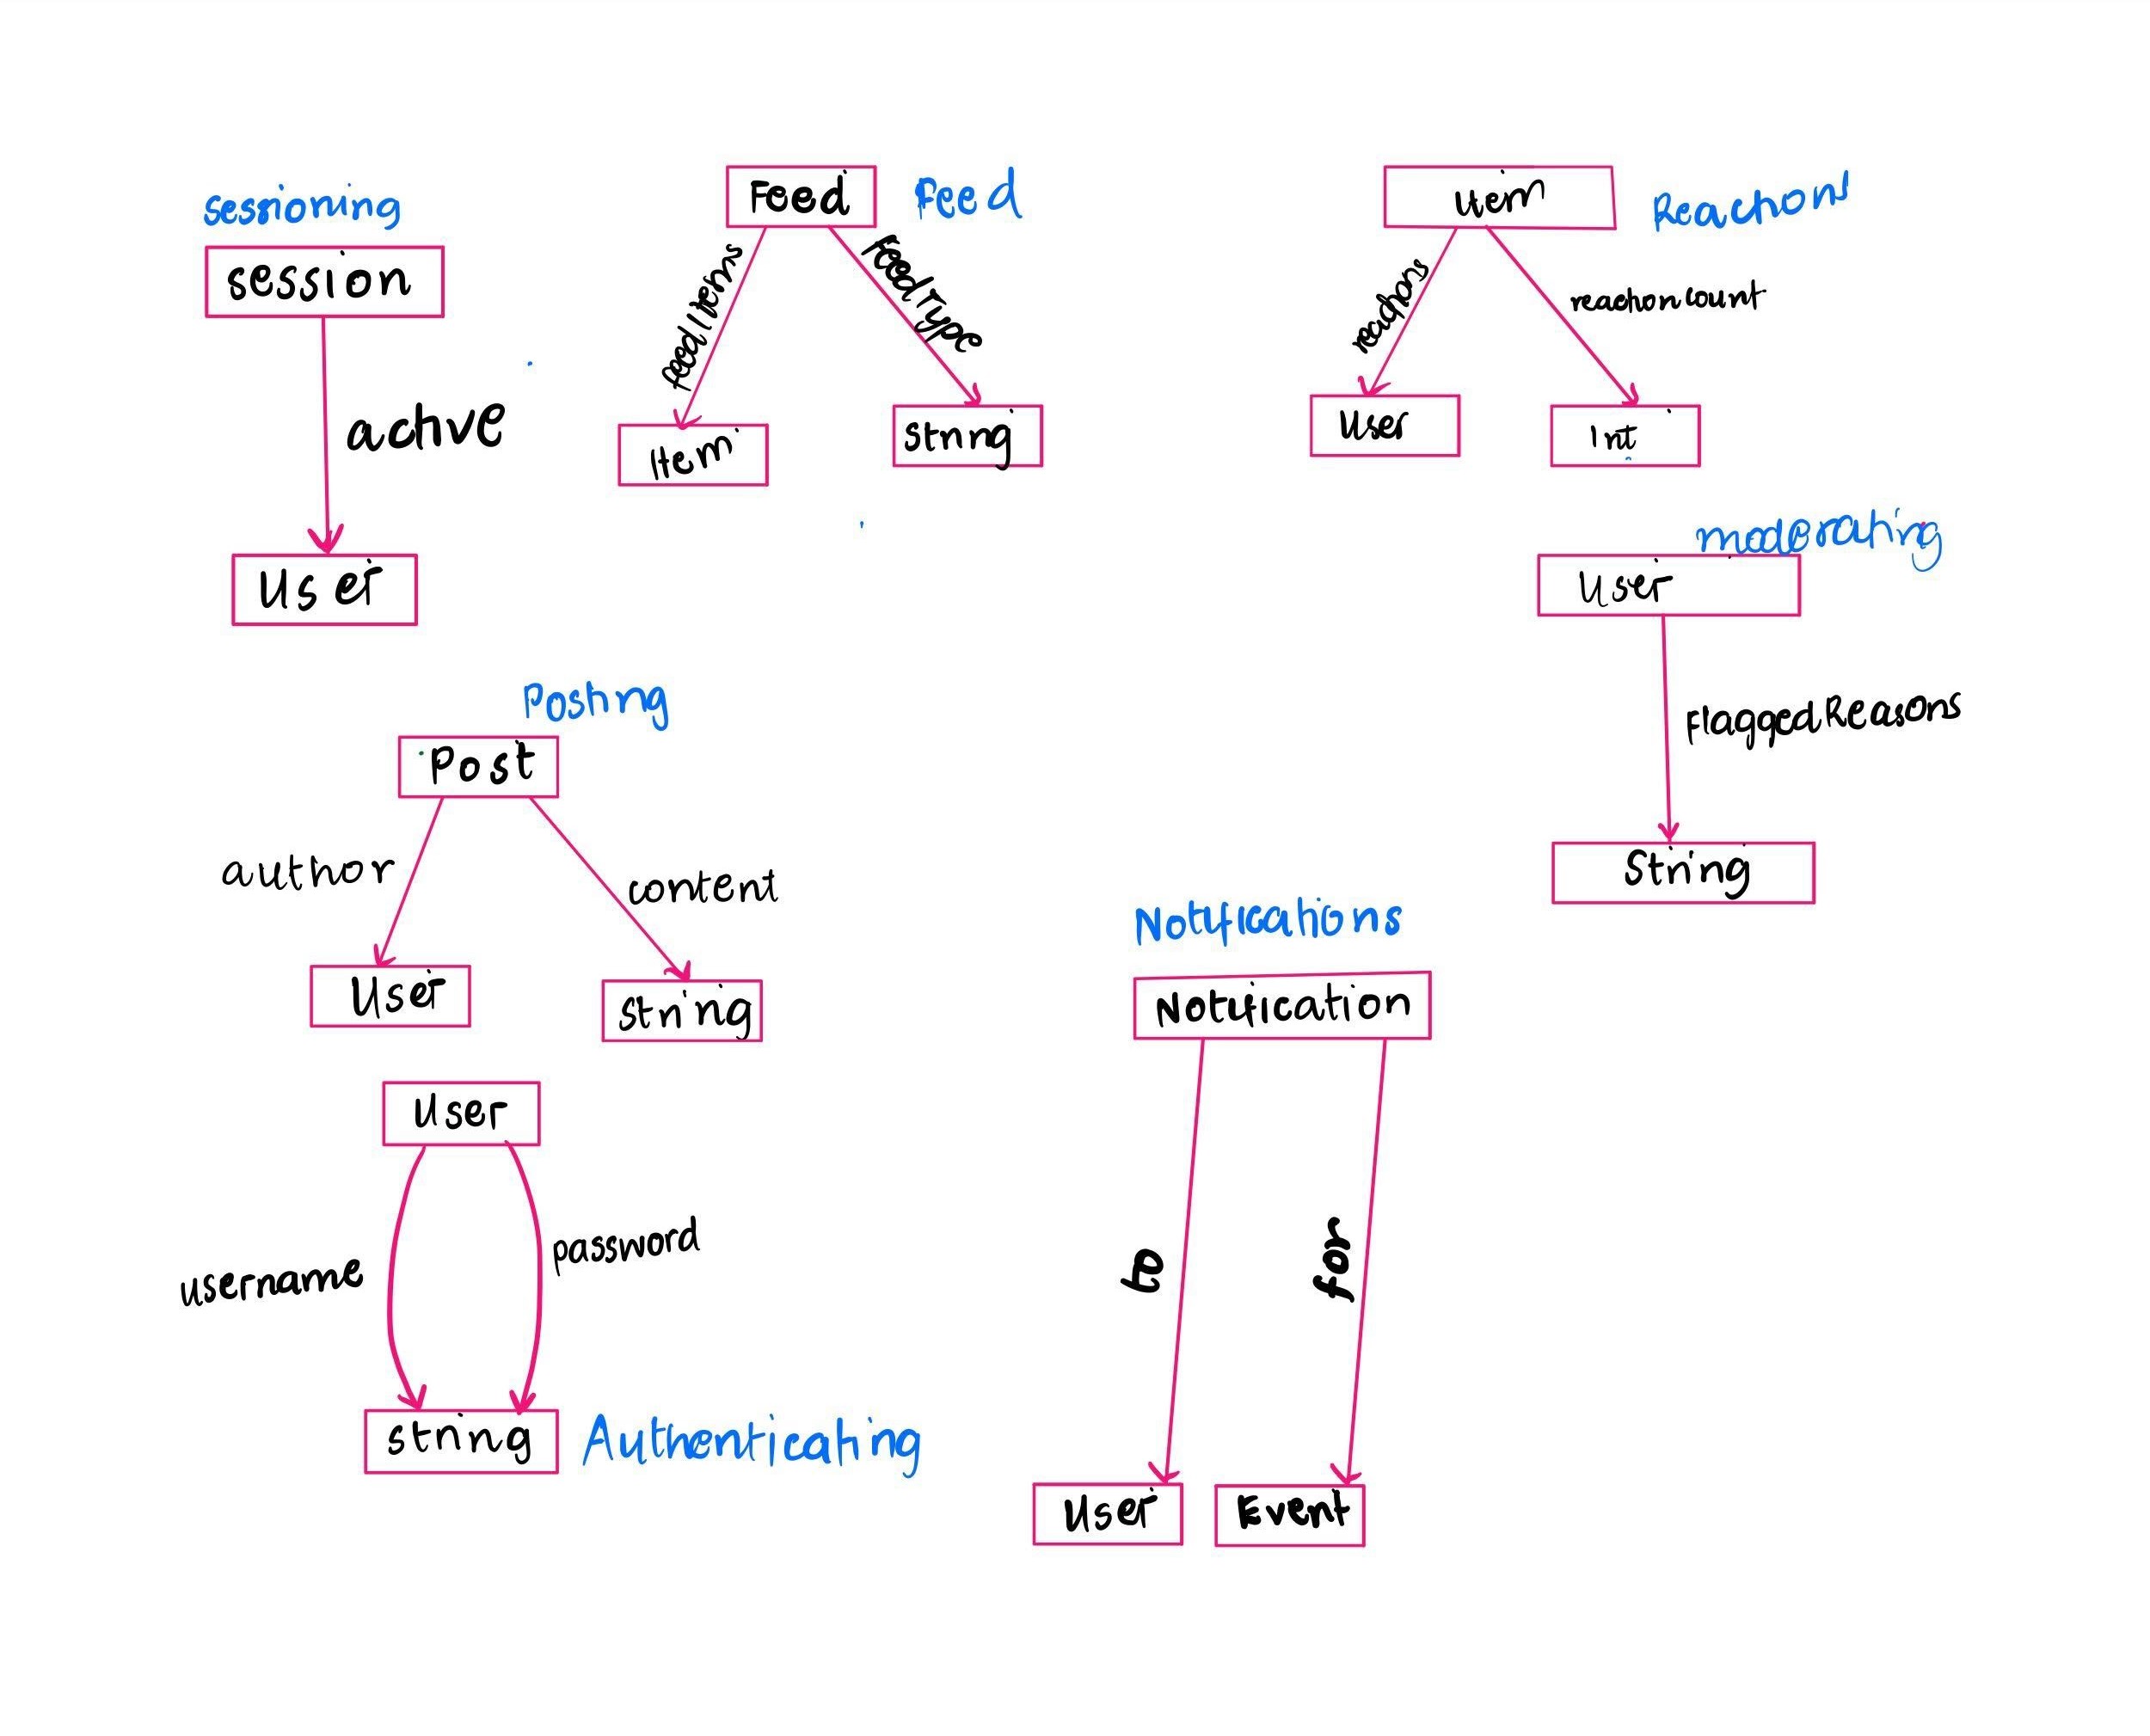 sessioning
session
active
User
Feed
Feed
feedItems
FeedType
Item
String
item
Reaction
reactions
reactionCount
User
Int
moderating
User
FlaggedReasons
String
Posting
Post
author
content
User
string
User
username
password
string
Authenticating
Notifications
Notification
to
for
User
Event